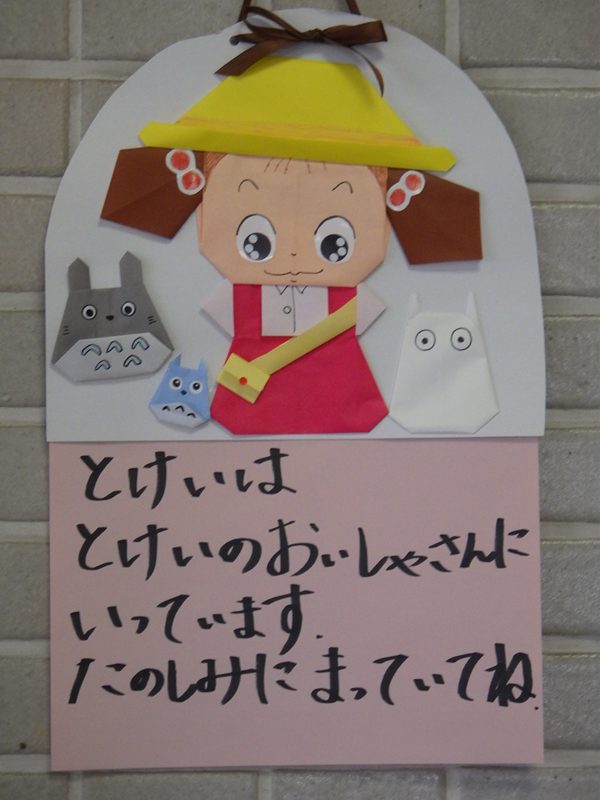 とけいは
とけいのおいしゃさんに
いっています.
たのしみにまっていてね.